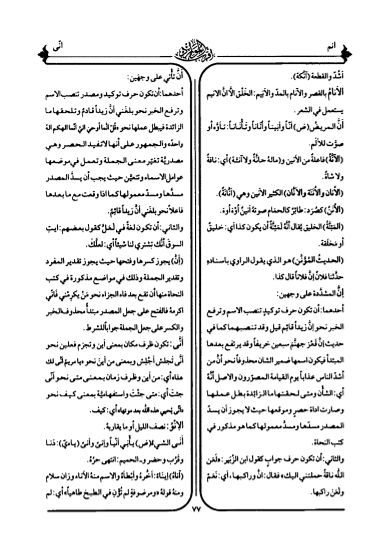 انم
انّى
أشدّ والقطعة (آنُكة).
الأنام بالقصر والأنام بالمدّ والأنيم: الخَلْق إلّا انّ الانيم
يستعمل في الشعر.
أنّ المريضُ (ض) أنّاً وأنيناً وأناناً وتَأناناً: تأوّه أو
صوّت للألم.
(الآنّة) فاعلة من الأنين و(ماله حانّة ولا آنّة) أي: ناقة
ولا شاة.
(الأنّان والأنّانة والأنّان) الكثير الأنين وهي (أنّانة).
(الأُنَن) كصُرَد: طائر كالحمام صوته أنين أوّه أوه.
(المَئِنّة) الخليق يقال أنّه لمَئِنّة أن يكون كذا أي: خليق
أو مخلقة.
(الحديث المؤنّن) هو الذي يقول الراوي باسناده
حدّثنا فلان إنّ فلاناً قال كذا.
إنّ المشدّدة على وجهين:
أحدهما: أن تكون حرف توكيد تنصب الاسم وترفع
الخبر نحو إنّ زيداً قائم قيل وقد تنصبهما كما في
حديث إنّ قعرَ جهنّمَ سبعين خريفاً وقد يرتفع بعدها
المبتدأ فيكون اسمها ضمير الشأن محذوفاً نحو أنّ من
أشدّ الناس عذاباً يوم القيامة المصوّرون والاصل أنّه
أي: الشأن ومتى لحقتها ما الزائدة بطل عملها
وصارت اداة حصر وموقعها حيث لا يجوز أن يسدّ
المصدر مسدّها ومسدّ معمولها كما هو مذكور في
كتب النحاة.
والثاني: أن تكون حرف جواب كقول ابن الزُبير: «لعن
الله ناقة حملتني اليك» فقال: انّ وراكبها، أي: نَعَمْ
ولعن راكبها.
أنّ تأتي على وجهين:
أحدهما: أن تكون حرف توكيد ومصدر تنصب الاسم
وترفع الخبر نحو بلغني أنّ زيداً قادم وتلحقها ما
الزائدة فيبطل عملها نحو قل انّما أوحي اليّ انّما الهكم اله
واحد والجمهور على أنها لا تفيد الحصر وهي
مصدريّة تغيّر معنى الجملة وتعمل في موضعها
عوامل الاسماء وتتعيّن حيث يجب أن يسدّ المصدر
مسدّها ومسدّ معمولها كما اذا وقعت مع ما بعدها
فاعلاً نحو بلغني أنّ زيداً قائم.
والثاني: أن تكون لغة في لعلّ كقول بعضهم: ايت
السوق أنّك تشتري لنا شيئاً أي: لعلّك.
(إنّ) يجوز كسرها وفتحها حيث يجوز تقدير المفرد
وتقدير الجملة وذلك في مواضع مذكورة في كتب
النحاة منها أن تقع بعد فاء الجزاء نحو مَن يكرمني فأنّي
اكرمه فالفتح على جعل المصدر مبتدأ محذوف الخبر
والكسر على جعل الجملة جواباً للشرط.
أنّى: تكون ظرف مكان بمعنى أين وتجزم فعلين نحو
أنّى تجلس أجلس وبمعنى من أين نحو «يا مريم أنّى لك
هذا» أي: من أين وظرف زمان بمعنى متى نحو أنّى
جئت أي: متى جئت واستفهاميّة بمعنى كيف نحو
«أنّى يحيي هذه الله بعد موتها» أي: كيف.
الأنْو: نصف الليل أو ما يقاربه.
أنى الشيءُ (ض) يأني أنياً وإنىً وأنيّ (يائي): دَنا
وقرُب وحضر ـ الحميم: انتهى حرّه.
(آناه) إيناءً: أخّره وأبطأه والاسم منه الأناء وزان سلام
ومنه قوله «ومرضوفة لم تُؤْنِ في الطبخ طاهياً» أي: لم
٧٧